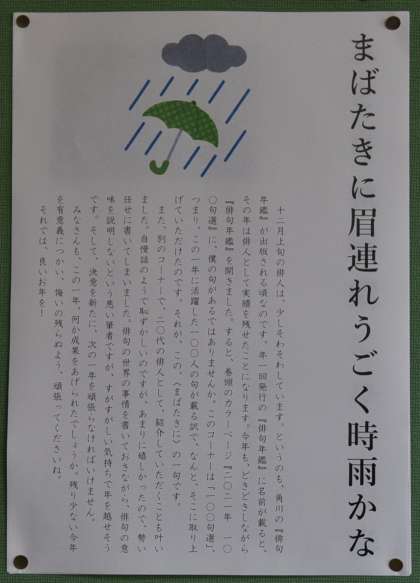 まばたきに眉連れうごく時雨かな
十二月上旬の俳人は、少しそわそわしています。というのも、角川の『俳句
年鑑』が出版される頃なのです。年一回発行の『俳句年鑑』に名前が載ると、
その年は俳人として実績を残せたことになります。今年も、どきどきしながら
『俳句年鑑』を開きました。すると、巻頭のカラーページ『二〇二一年　一〇
〇句選』に、僕の句があるではありませんか。このコーナーは「一〇〇句選」、
つまり、この一年に活躍した一〇〇人の句が載る訳で、なんと、そこに取り上
げていただけたのです。それが、この、〈まばたきに〉の一句です。
また、別のコーナーで、二〇代の俳人として、紹介していただくことも叶い
ました。自慢話のようで恥ずかしいのですが、あまりに嬉しかったので、勢い
任せに書いてしまいました。俳句の世界の事情を書いておきながら、俳句の意
味を説明しないという悪い筆者ですが、すがすがしい気持ちで年を越せそう
です。そして、決意を新たに、次の一年を頑張らなければいけません。
みなさんも、この一年、何か成果をあげられたでしょうか。残り少ない今年
を有意義につかい、悔いの残らぬよう、頑張ってくださいね。
それでは、良いお年を！